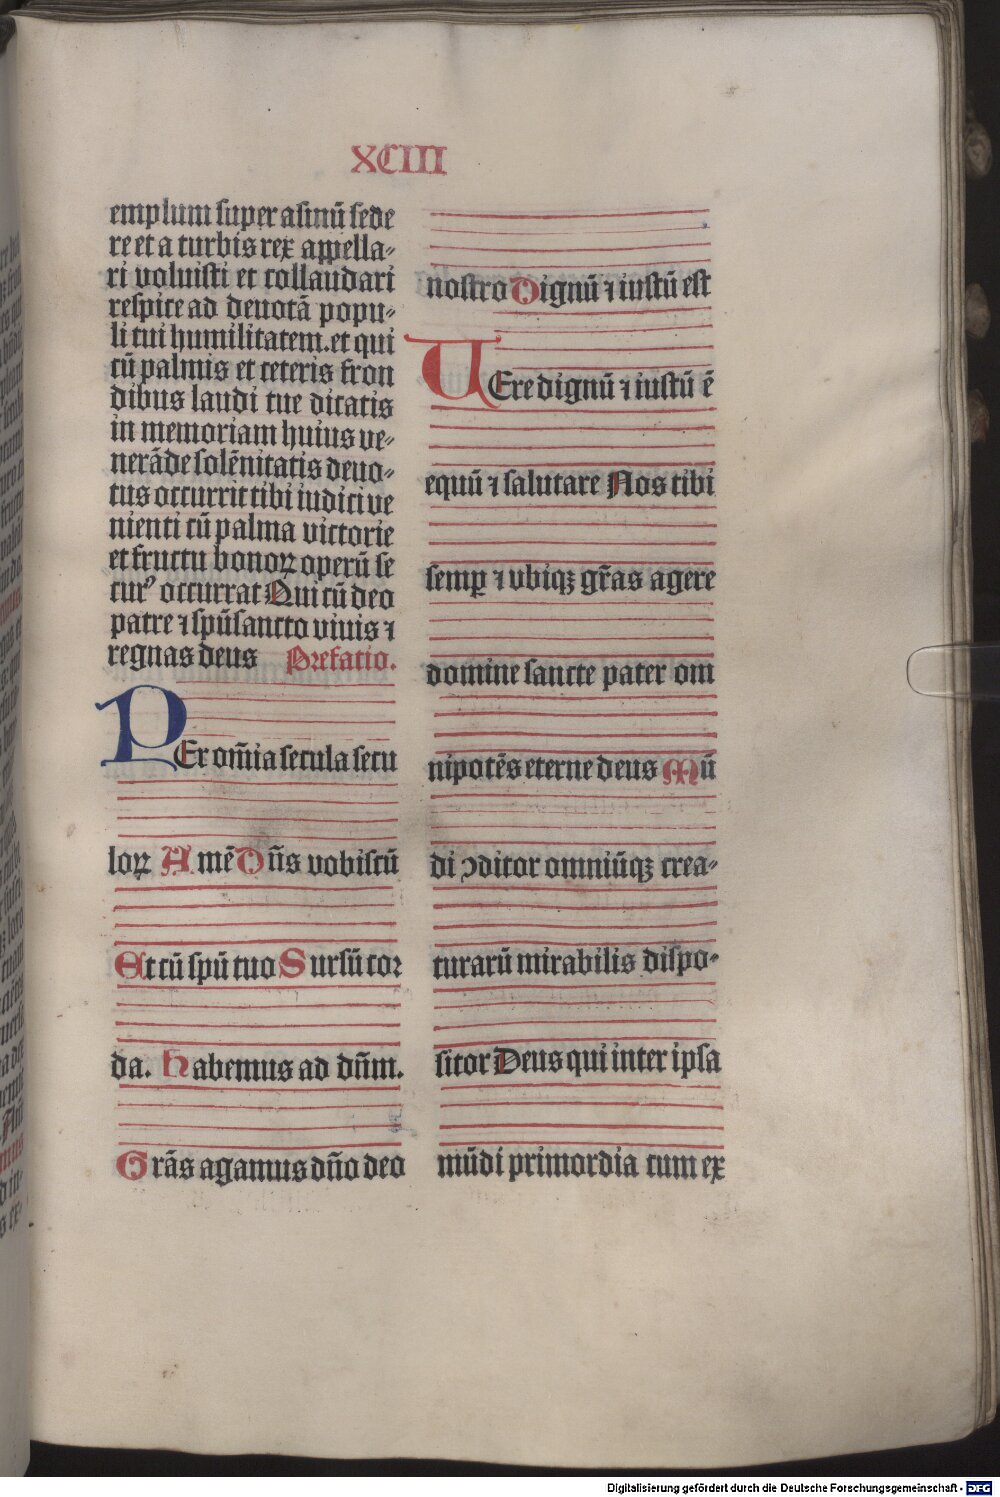 XCIII
emplum super asinū sede
re et a turbis rex appella⸗
ri voluisti et collaudari
respice ad deuotā popu⸗
li tui humilitatem. et qui
cū palmis et ceteris fron
dibus laudi tue dicatis
in memoriam huius ve⸗
nerāde solēnitatis deuo⸗
tus occurrit tibi iudici ve
nienti cū palma victorie
et fructu bonoꝝ operū se
curꝰ occurrat Qui cū deo
patre ⁊ spūsancto viuis ⁊
regnas deus Prefatio.
PEr om̄ia secula secu
loꝝ Amē Dn̄s vobiscū
Et cū spū tuo Sursū cor
da. Habemus ad dn̄m.
Grās agamus dn̄o deo
nostro Dignū ⁊ iustū est
VEre dignū ⁊ iustū ē
equū ⁊ salutare Nos tibi
semꝑ ⁊ vbiqꝫ gr̄as agere
domine sancte pater om
nipotēs eterne deus Mū
di ↄditor omniūqꝫ crea⸗
turarū mirabilis dispo⸗
sitor Deus qui inter ipsa
mūdi primordia cum ex
Digitalisierung gefördert durch die Deutsche Forschungsgemeinschaft - DFG